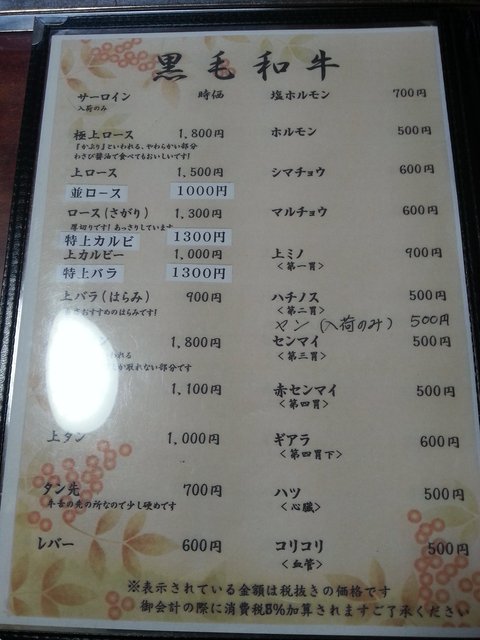 黒毛和牛
サーロイン 時価
入荷のみ
極上ロース 1,800円
『かぶり』といわれる、やわらかい部分
わさび醤油で食べてもおいしいです!
上ロース 1,500円
並ロース 1000円
ロース(さがり) 1,300円
厚切りです! あっさりしています
特上カルビ 1300円
上カルビー 1,000円
特上バラ 1300円
上バラ(はらみ) 900円
おすすめのはらみです!
ス 1,800円
われる
か取れない部分です
1,100円
上タン 1,000円
タン先 700円
牛舌の先の所なので少し硬めです
レバー 600円
塩ホルモン 700円
ホルモン 500円
シマチョウ 600円
マルチョウ 600円
上ミノ 900円
<第一胃>
ハチノス 500円
<第二胃>
ヤン (入荷のみ) 500円
センマイ 500円
<第三胃>
赤センマイ 500円
<第四胃>
ギアラ 600円
<第四胃下>
ハツ 500円
<心臓>
コリコリ 500円
<血管>
※表示されている金額は税抜きの価格です
御会計の際に消費税8%加算されますご了承ください